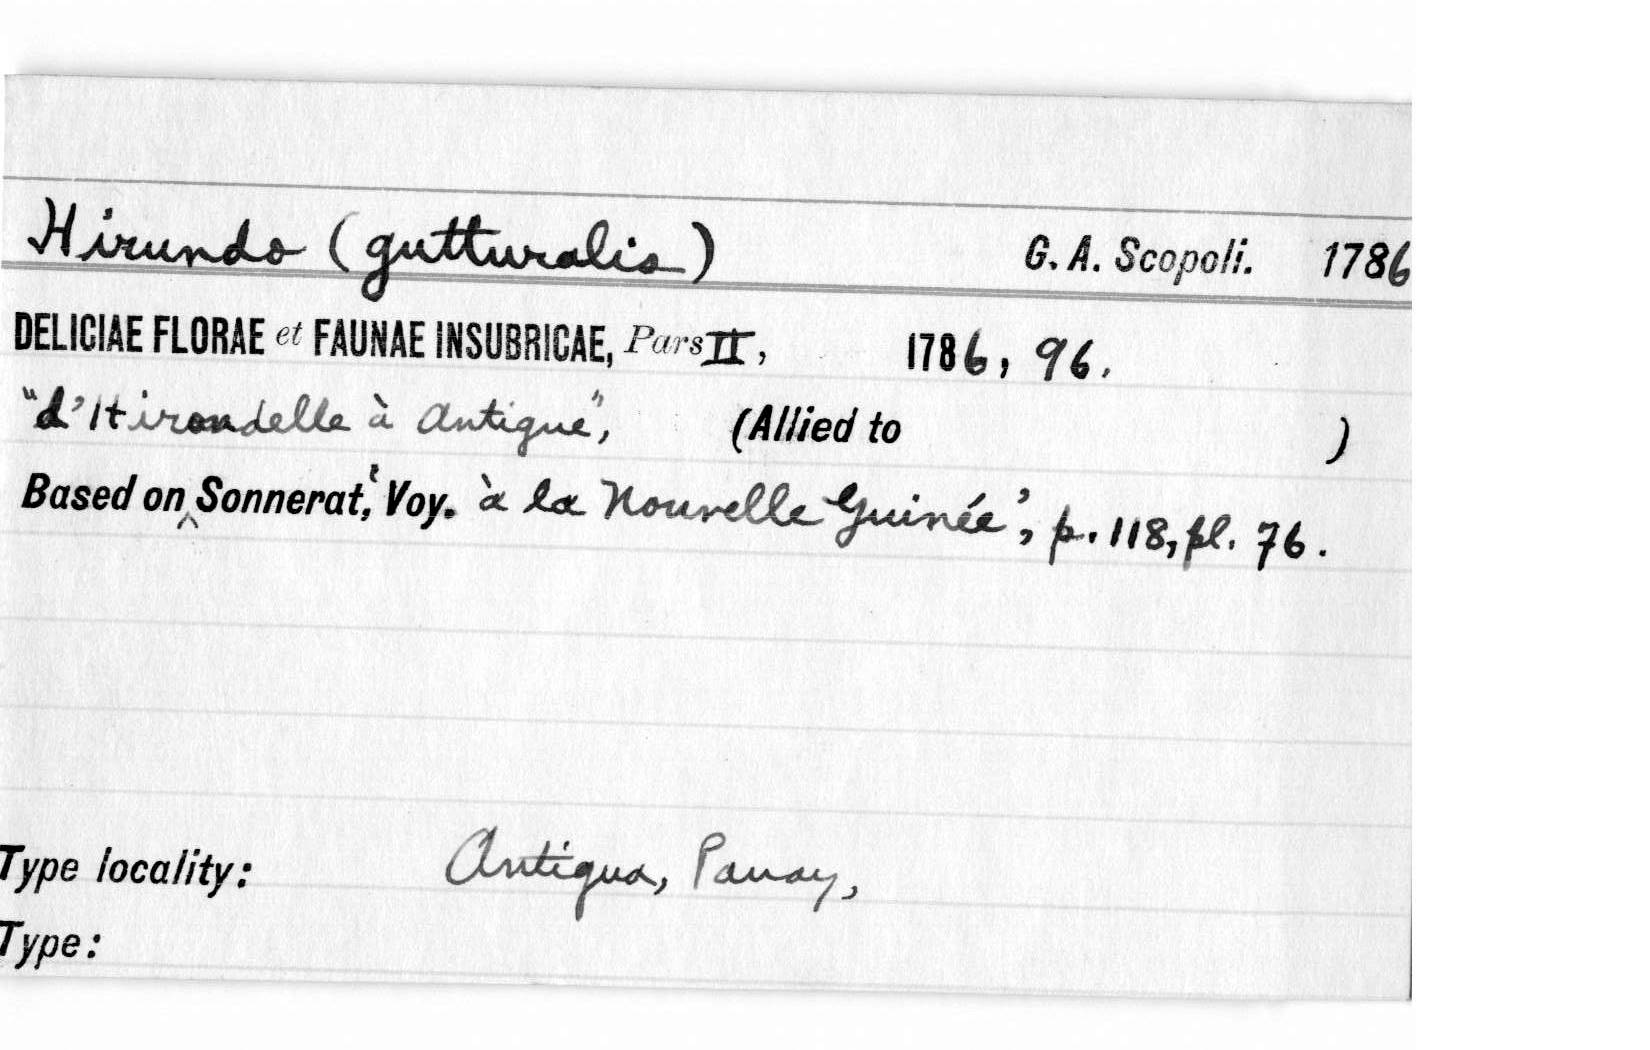 Hirundo (gutturalis) G. A. Scopoli. 1786
DELICIAE FLORAE et FAUNAE INSUBRICAE, Pars II, 1786, 96.
"d'Hirondelle à Antigue", (Allied to )
Based on Sonnerat, 'Voy. à la Nouvelle Guinée', p. 118, pl. 76.
Type locality: Antigua, Panay,
Type: